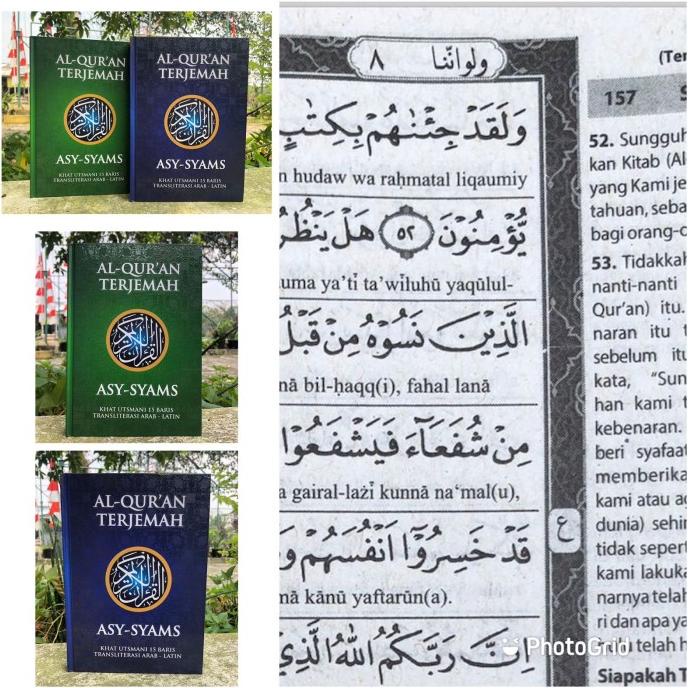 AL-QUR'AN
TERJEMAH
القرآن الكريم
ASY-SYAMS
KHAT UTSMANI 15 BARIS
TRANSLITERASI ARAB - LATIN
AL-QUR'AN
TERJEMAH
القرآن الكريم
ASY-SYAMS
KHAT UTSMANI 15 BARIS
TRANSLITERASI ARAB - LATIN
AL-QUR'AN
TERJEMAH
القرآن الكريم
ASY-SYAMS
KHAT UTSMANI 15 BARIS
TRANSLITERASI ARAB - LATIN
AL-QUR'AN
TERJEMAH
القرآن الكريم
ASY-SYAMS
KHAT UTSMANI 15 BARIS
TRANSLITERASI ARAB - LATIN
ولواننا ٨
وَلَقَدْ جِئْنٰهُمْ بِكِتٰبٍ
n hudaw wa raḥmatal liqaumiy
يُّؤْمِنُوْنَ ٥٢ هَلْ يَنْظُرُ
uma ya'tī ta'wīluhū yaqūlul-
الَّذِيْنَ نَسُوْهُ مِنْ قَبْلُ
nā bil-ḥaqq(i), fahal lanā
مِنْ شُفَعَاۤءَ فَيَشْفَعُوْا
a gairal-lażī kunnā na'mal(u),
قَدْ خَسِرُوْٓا اَنْفُسَهُمْ وَ
mā kānū yaftarūn(a).
اِنَّ رَبَّكُمُ اللّٰهُ الَّذِيْ
ع
(Ter
157 S
52. Sungguh
kan Kitab (Al
yang Kami je
tahuan, seba
bagi orang-o
53. Tidakkah
nanti-nanti
Qur'an) itu.
naran itu t
sebelum itu
kata, "Sun
han kami t
kebenaran.
beri syafaat
memberika
kami atau ad
dunia) sehin
tidak sepert
kami lakuka
narnya telah
ri dan apa ya
u telah h
Siapakah T
PhotoGrid